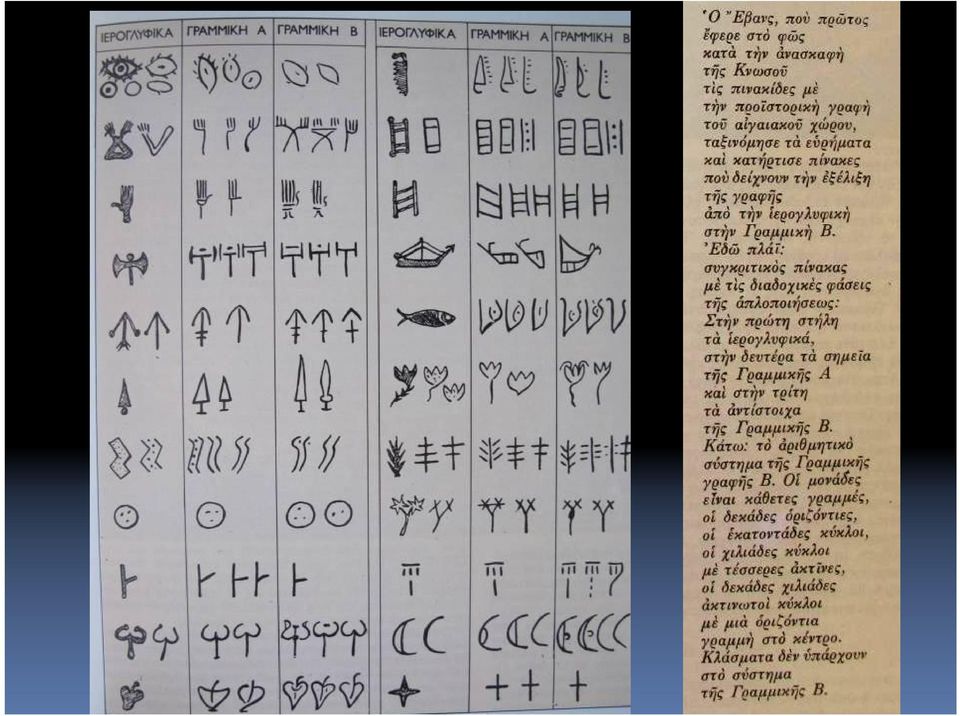 ΙΕΡΟΓΛΥΦΙΚΑ ΓΡΑΜΜΙΚΗ Α ΓΡΑΜΜΙΚΗ Β ΙΕΡΟΓΛΥΦΙΚΑ ΓΡΑΜΜΙΚΗ Α ΓΡΑΜΜΙΚΗ Β
Ὁ Ἔβανς, ποὺ πρῶτος
ἔφερε στὸ φῶς
κατὰ τὴν ἀνασκαφὴ
τῆς Κνωσοῦ
τὶς πινακίδες μὲ
τὴν προϊστορικὴ γραφὴ
τοῦ αἰγαιακοῦ χώρου,
ταξινόμησε τὰ εὑρήματα
καὶ κατήρτισε πίνακες
ποὺ δείχνουν τὴν ἐξέλιξη
τῆς γραφῆς
ἀπὸ τὴν ἱερογλυφικὴ
στὴν Γραμμικὴ Β.
Ἐδῶ πλάϊ:
συγκριτικὸς πίνακας
μὲ τὶς διαδοχικὲς φάσεις
τῆς ἁπλοποιήσεως:
Στὴν πρώτη στήλη
τὰ ἱερογλυφικά,
στὴν δευτέρα τὰ σημεῖα
τῆς Γραμμικῆς Α
καὶ στὴν τρίτη
τὰ ἀντίστοιχα
τῆς Γραμμικῆς Β.
Κάτω: τὸ ἀριθμητικὸ
σύστημα τῆς Γραμμικῆς
γραφῆς Β. Οἱ μονάδες
εἶναι κάθετες γραμμές,
οἱ δεκάδες ὁριζόντιες,
οἱ ἑκατοντάδες κύκλοι,
οἱ χιλιάδες κύκλοι
μὲ τέσσερες ἀκτῖνες,
οἱ δεκάδες χιλιάδες
ἀκτινωτοὶ κύκλοι
μὲ μιὰ ὁριζόντια
γραμμὴ στὸ κέντρο.
Κλάσματα δὲν ὑπάρχουν
στὸ σύστημα
τῆς Γραμμικῆς Β.